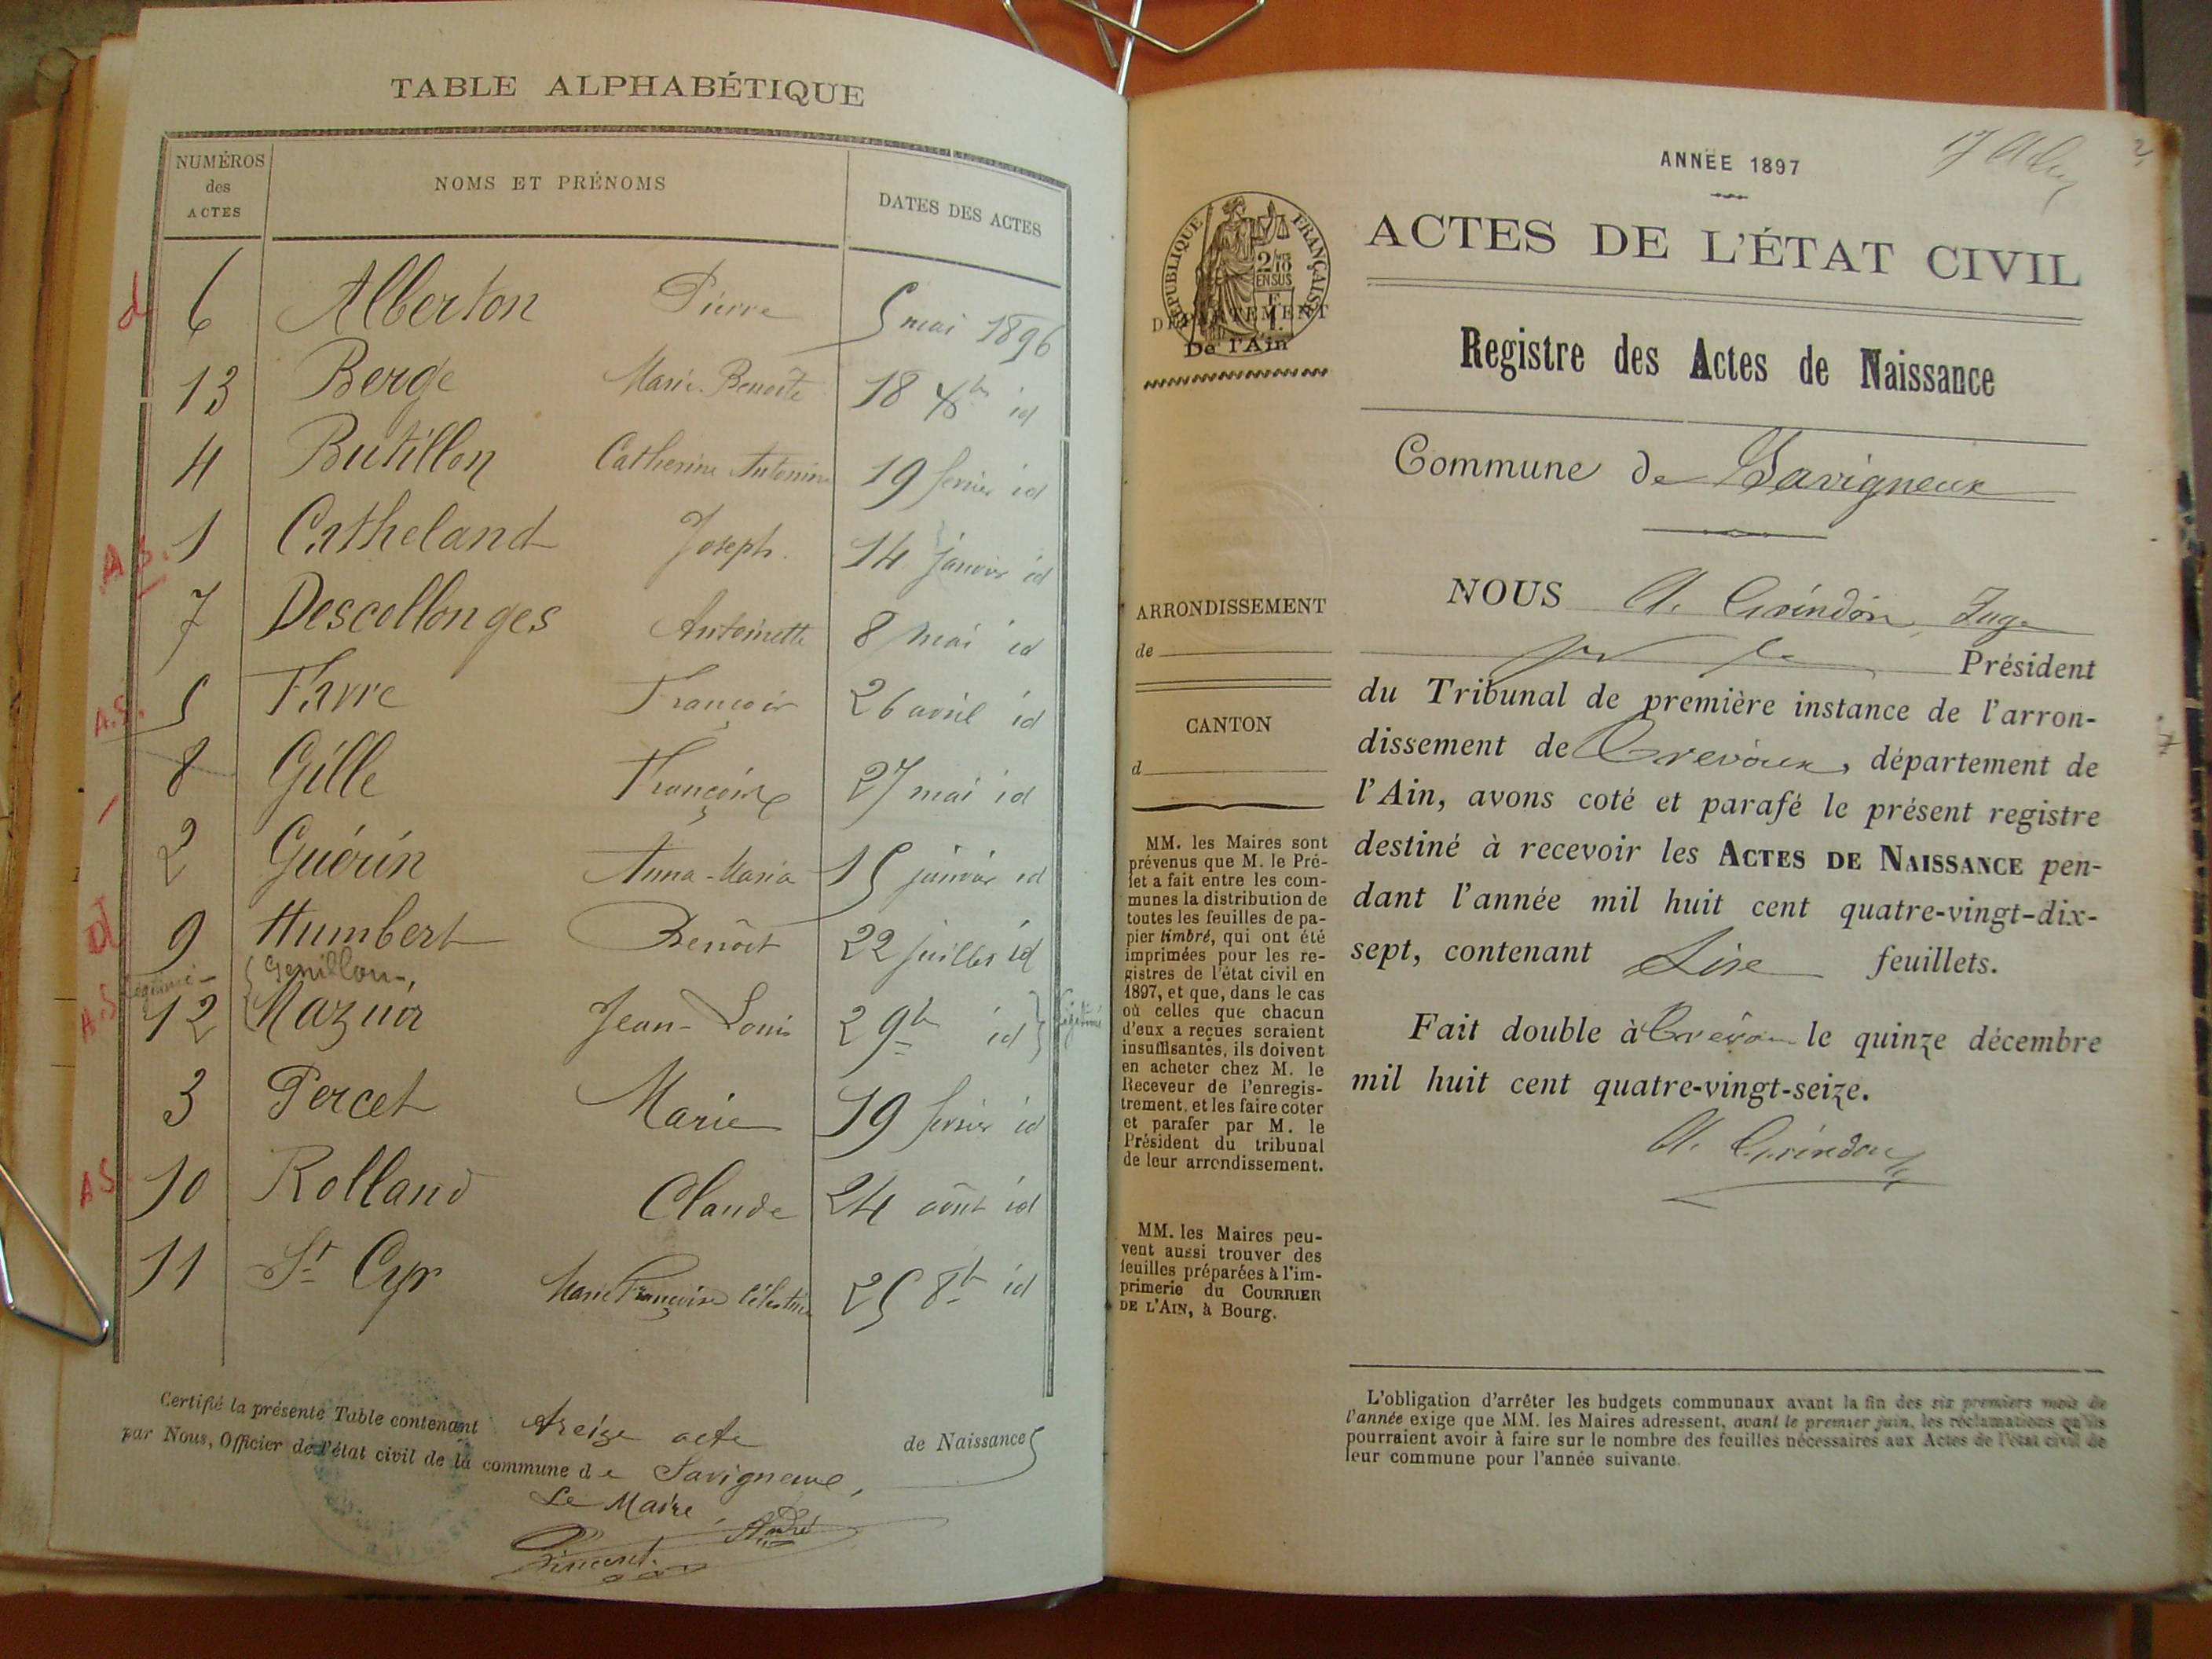 TABLE ALPHABÉTIQUE
NUMÉROS des ACTES
NOMS ET PRÉNOMS
DATES DES ACTES
d 6 Alberton Pierre 5 mai 1896
13 Berge Marie-Benoîte 18 Xbre id
4 Butillon Catherine Antonine 19 février id
A.S. 1 Catheland Joseph 14 janvier id
7 Descollonges Antoinette 8 mai id
A.S. 5 Favre François 26 avril id
8 Gille Françoise 27 mai id
2 Guérin Anna-Maria 15 janvier id
D 9 Humbert Benoît 22 juillet id
Genillon
A.S 12 Mazuir Jean-Louis 2 9bre id Légitimé
3 Percet Marie 19 février id
A.S. 10 Rolland Claude 24 août id
11 St Cyr Marie Françoise Célestine 25 8bre id
Certifié la présente Table contenant treize acte de Naissances
par Nous, Officier de l'état civil de la commune de Savigneux,
Le Maire,
André
Vincent
2
ANNÉE 1897
RÉPUBLIQUE FRANÇAISE
2/10 EN SUS
DÉPARTEMENT
De l'Ain
ACTES DE L'ÉTAT CIVIL
Registre des Actes de Naissance
Commune de Savigneux
ARRONDISSEMENT
de
CANTON
d
MM. les Maires sont
prévenus que M. le Pré-
fet a fait entre les com-
munes la distribution de
toutes les feuilles de pa-
pier timbré, qui ont été
imprimées pour les re-
gistres de l'état civil en
1897, et que, dans le cas
où celles que chacun
d'eux a reçues seraient
insuffisantes, ils doivent
en acheter chez M. le
Receveur de l'enregis-
trement, et les faire coter
et parafer par M. le
Président du tribunal
de leur arrondissement.
MM. les Maires peu-
vent aussi trouver des
feuilles préparées à l'im-
primerie du COURRIER
DE L'AIN, à Bourg.
NOUS A. Grindon, Juge
pr le Président
du Tribunal de première instance de l'arron-
dissement de Trévoux, département de
l'Ain, avons coté et parafé le présent registre
destiné à recevoir les ACTES DE NAISSANCE pen-
dant l'année mil huit cent quatre-vingt-dix-
sept, contenant Six feuillets.
Fait double à Trévoux le quinze décembre
mil huit cent quatre-vingt-seize.
A. Grindon
L'obligation d'arrêter les budgets communaux avant la fin des six premiers mois de
l'année exige que MM. les Maires adressent, avant le premier juin, les réclamations qu'ils
pourraient avoir à faire sur le nombre des feuilles nécessaires aux Actes de l'état civil de
leur commune pour l'année suivante.